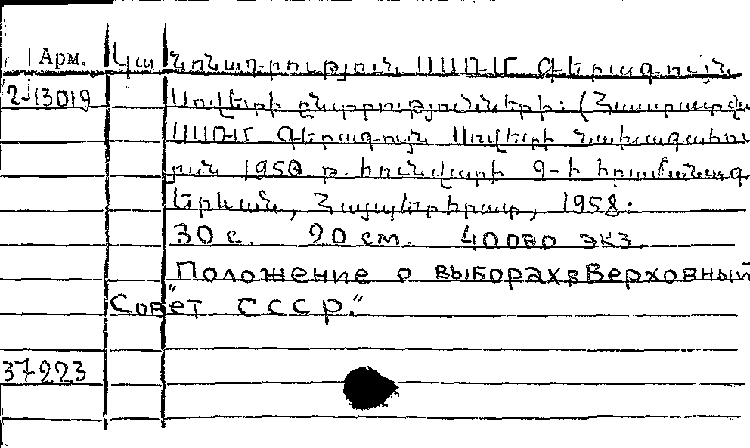 Арм. Կա նոնադրություն ՍՍՌՄ Գերագույն
2-13019 Սովետի ընտրությունների: (Հաստատվ
ՍՍՌՄ Գերագույն Սովետի Նախագահու
թյան 1950 թ. հունվարի 9-ի հրամանագ
Երևան, Հայպետհրատ, 1958:
30 с. 20 см. 40000 экз.
"Положение о выборах в Верховный
Совет СССР."
37223